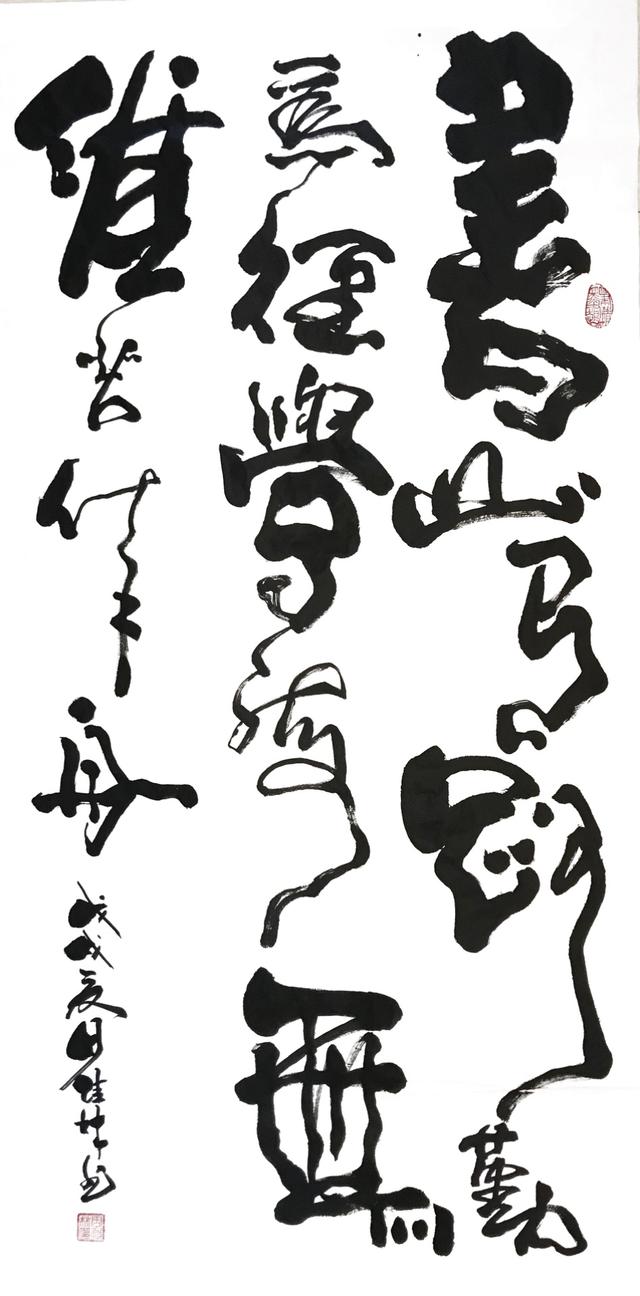 書山有路勤
為徑學海無
涯苦作舟
戊戌夏月佳坤